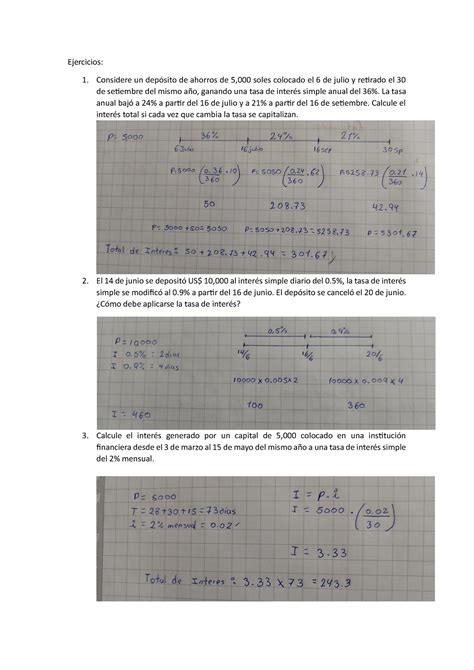 Ejercicios:
1. Considere un depósito de ahorros de 5,000 soles colocado el 6 de julio y retirado el 30
de setiembre del mismo año, ganando una tasa de interés simple anual del 36%. La tasa
anual bajó a 24% a partir del 16 de julio y a 21% a partir del 16 de setiembre. Calcule el
interés total si cada vez que cambia la tasa se capitalizan.
P= 5000 36% 24% 21%
6 Julio 16 julio 16 sep 30 sp
P. 5000 (0.36/360 . 10) P= 5050 (0.24/360 . 62) P. 5258.73 (0.21/360 . 14)
50 208.73 42.94
P= 5000 +50= 5050 P= 5050+208.73=5258.73 P= 5301,67
Total de Interes = 50 + 208.73 +42.94 = 301.67
2. El 14 de junio se depositó US$ 10,000 al interés simple diario del 0.5%, la tasa de interés
simple se modificó al 0.9% a partir del 16 de junio. El depósito se canceló el 20 de junio.
¿Cómo debe aplicarse la tasa de interés?
0,5% 0,9%
P= 10000
14/6 16/6 20/6
I 0.5% = 2dias
I 0.9% = 4dias
10000 x 0.005*2 10000 x 0.009 x 4
100 360
I = 460
3. Calcule el interés generado por un capital de 5,000 colocado en una institución
financiera desde el 3 de marzo al 15 de mayo del mismo año a una tasa de interés simple
del 2% mensual.
P= 5000 I = P.i
T = 28+30+15=73dias I = 5000 . (0.02/30)
i = 2% mensual = 0.02
I = 3.33
Total de Interes = 3.33 x 73 = 243.3